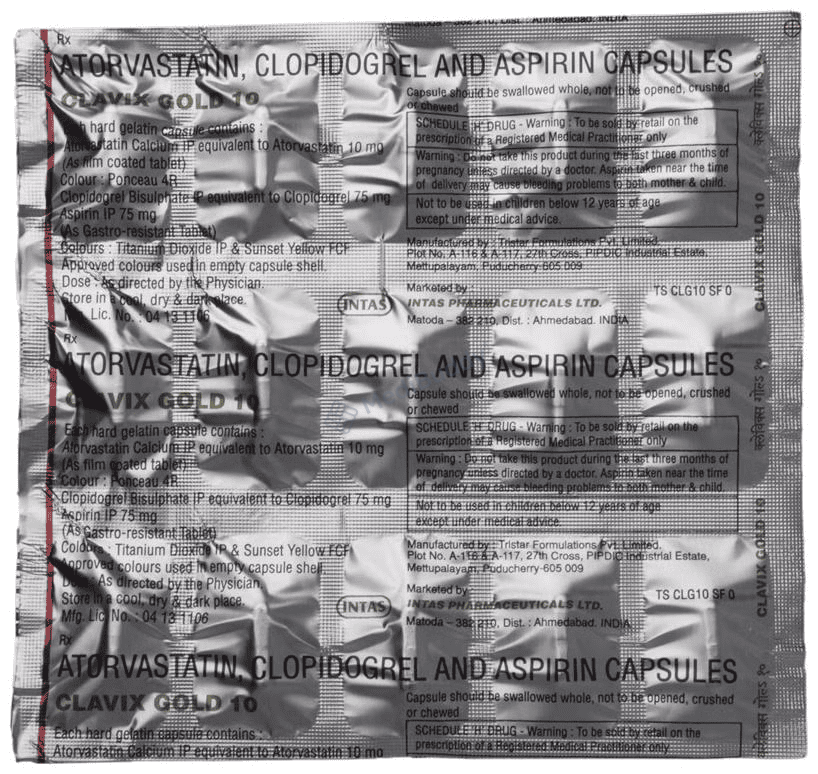 Matoda – 382 210, Dist. : Ahmedabad. INDIA
Rx
ATORVASTATIN, CLOPIDOGREL AND ASPIRIN CAPSULES
CLAVIX GOLD 10
Each hard gelatin capsule contains :
Atorvastatin Calcium IP equivalent to Atorvastatin 10 mg
(As film coated tablet)
Colour : Ponceau 4R
Clopidogrel Bisulphate IP equivalent to Clopidogrel 75 mg
Aspirin IP 75 mg
(As Gastro-resistant Tablet)
Colours : Titanium Dioxide IP & Sunset Yellow FCF
Approved colours used in empty capsule shell.
Dose : As directed by the Physician.
Store in a cool, dry & dark place.
Mfg. Lic. No. : 04 13 1106
Capsule should be swallowed whole, not to be opened, crushed
or chewed
SCHEDULE 'H' DRUG - Warning : To be sold by retail on the
prescription of a Registered Medical Practitioner only
Warning : Do not take this product during the last three months of
pregnancy unless directed by a doctor. Aspirin taken near the time
of delivery may cause bleeding problems to both mother & child.
Not to be used in children below 12 years of age
except under medical advice.
Manufactured by : Tristar Formulations Pvt. Limited.
Plot No. A-116 & A-117, 27th Cross, PIPDIC Industrial Estate,
Mettupalayam, Puducherry-605 009
Marketed by :
INTAS
INTAS PHARMACEUTICALS LTD.
Matoda – 382 210, Dist. : Ahmedabad. INDIA
TS CLG10 SF 0
CLAVIX GOLD 10
क्लेविक्स गोल्ड १०
Rx
ATORVASTATIN, CLOPIDOGREL AND ASPIRIN CAPSULES
CLAVIX GOLD 10
Each hard gelatin capsule contains :
Atorvastatin Calcium IP equivalent to Atorvastatin 10 mg
(As film coated tablet)
Colour : Ponceau 4R
Clopidogrel Bisulphate IP equivalent to Clopidogrel 75 mg
Aspirin IP 75 mg
(As Gastro-resistant Tablet)
Colours : Titanium Dioxide IP & Sunset Yellow FCF
Approved colours used in empty capsule shell
Dose : As directed by the Physician.
Store in a cool, dry & dark place.
Mfg. Lic. No. : 04 13 1106
Capsule should be swallowed whole, not to be opened, crushed
or chewed
SCHEDULE 'H' DRUG - Warning : To be sold by retail on the
prescription of a Registered Medical Practitioner only
Warning : Do not take this product during the last three months of
pregnancy unless directed by a doctor. Aspirin taken near the time
of delivery may cause bleeding problems to both mother & child.
Not to be used in children below 12 years of age
except under medical advice.
Manufactured by : Tristar Formulations Pvt. Limited.
Plot No. A-116 & A-117, 27th Cross, PIPDIC Industrial Estate,
Mettupalayam, Puducherry-605 009
Marketed by
INTAS
INTAS PHARMACEUTICALS LTD.
Matoda – 382 210, Dist. : Ahmedabad. INDIA
TS CLG10 SF 0
CLAVIX GOLD 10
क्लेविक्स गोल्ड १०
Rx
ATORVASTATIN, CLOPIDOGREL AND ASPIRIN CAPSULES
CLAVIX GOLD 10
Each hard gelatin capsule contains :
Atorvastatin Calcium IP equivalent to Atorvastatin 10 mg
Capsule should be swallowed whole, not to be opened, crushed
or chewed
SCHEDULE 'H' DRUG - Warning : To be sold by retail on the
prescription of a Registered Medical Practitioner only
क्लेविक्स गोल्ड १०